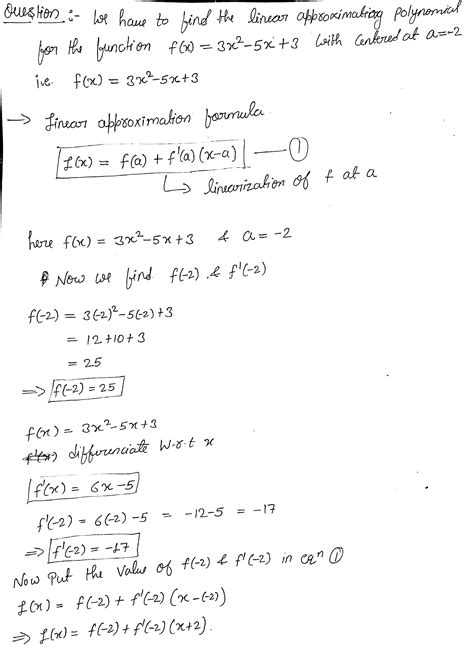 Question :- We have to find the linear approximation polynomial
for the function f(x) = 3x²-5x+3 with centered at a=-2
i.e. f(x) = 3x²-5x+3
→ Linear approximation formula.
L(x) = f(a) + f'(a) (x-a) — ①
↳ linearization of f at a
here f(x) = 3x²-5x+3 & a = -2
Now we find f(-2) & f'(-2)
f(-2) = 3(-2)²-5(-2)+3
= 12+10+3
= 25
⇒ f(-2) = 25
f(x) = 3x²-5x+3
f'(x) differenciate w.r.t x
f'(x) = 6x-5
f'(-2) = 6(-2)-5 = -12-5 = -17
⇒ f'(-2) = -17
Now Put the value of f(-2) & f'(-2) in eqⁿ ①
L(x) = f(-2) + f'(-2) (x-(-2))
⇒ L(x) = f(-2) + f'(-2) (x+2).